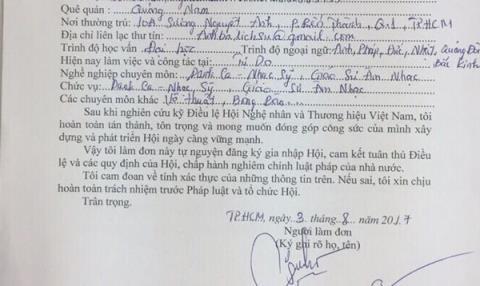 Quê quán : Quảng Nam
Nơi thường trú: 10A Sương Nguyệt Anh, P. Bến Thành, Q.1, TP.HCM
Địa chỉ liên lạc thư tín: @gmail.com
Trình độ học vấn Đại học Trình độ ngoại ngữ: Anh, Pháp, Đức, Nhật, Quảng Đông
Hiện nay làm việc và công tác tại: Tự Do Bắc Kinh
Nghề nghiệp chuyên môn: Danh Ca - Nhạc Sỹ, Giáo Sư Âm Nhạc
Chức vụ: Danh Ca - Nhạc Sỹ, Giáo Sư Âm Nhạc
Các chuyên môn khác Võ Thuật, Bóng Bàn
Sau khi nghiên cứu kỹ Điều lệ Hội Nghệ nhân và Thương hiệu Việt Nam, tôi
hoàn toàn tán thành, tôn trọng và mong muốn đóng góp công sức của mình xây dựng
và phát triển Hội ngày càng vững mạnh.
Vậy tôi làm đơn này tự nguyện đăng ký gia nhập Hội, cam kết tuân thủ Điều
lệ và các quy định của Hội, chấp hành nghiêm chỉnh luật pháp của nhà nước.
Tôi cam đoan về tính xác thực của những thông tin trên. Nếu sai, tôi xin chịu
hoàn toàn trách nhiệm trước Pháp luật và tổ chức Hội.
Trân trọng.
TP.HCM, ngày 3 tháng 8 năm 2017
Người làm đơn
(Ký ghi rõ họ, tên)